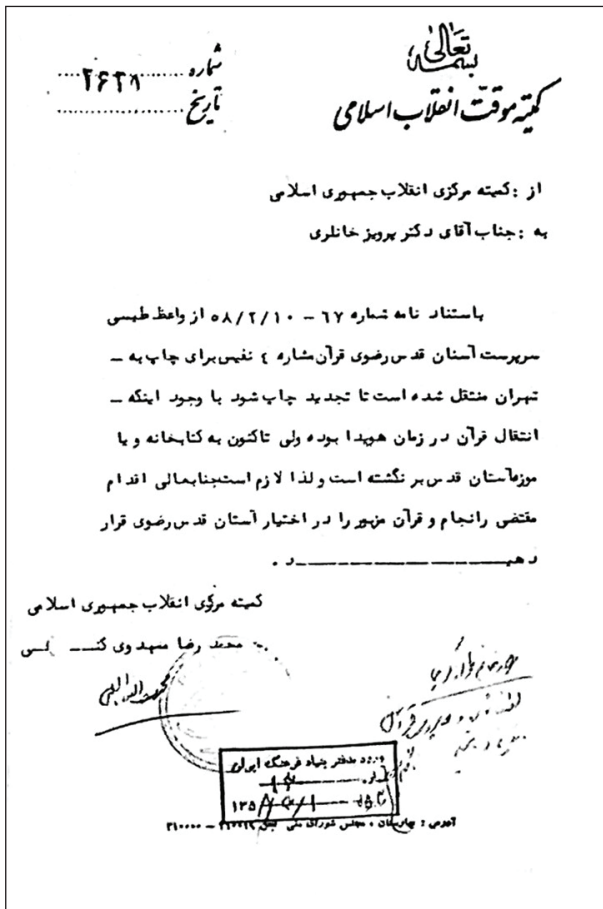 بسمه تعالی
کمیته موقت انقلاب اسلامی
شماره ۲۶۲۸
تاریخ
از : کمیته مرکزی انقلاب جمهوری اسلامی
به : جناب آقای دکتر پرویز خانلری
باستناد نامه شماره ۶۷ - ۵۸/۲/۱۰ از واعظ طبسی
سرپرست آستان قدس رضوی قرآن شماره ٤ نفیس برای چاپ به -
تهران منتقل شده است تا تجدید چاپ شود با وجود اینکه -
انتقال قرآن در زمان هویدا بوده ولی تاکنون به کتابخانه و یا
موزه آستان قدس بر نگشته است و لذا لازم است جنابعالی اقدام
مقتضی را انجام و قرآن مزبور را در اختیار آستان قدس رضوی قرار
دهیـــــــــــــــــــد .
کمیته مرکزی انقلاب جمهوری اسلامی
محمد رضا مهدوی کنـــ ـی
ورود بدفتر بنیاد فرهنگ ایران
آدرس : بهارستان ، مجلس شورای ملی